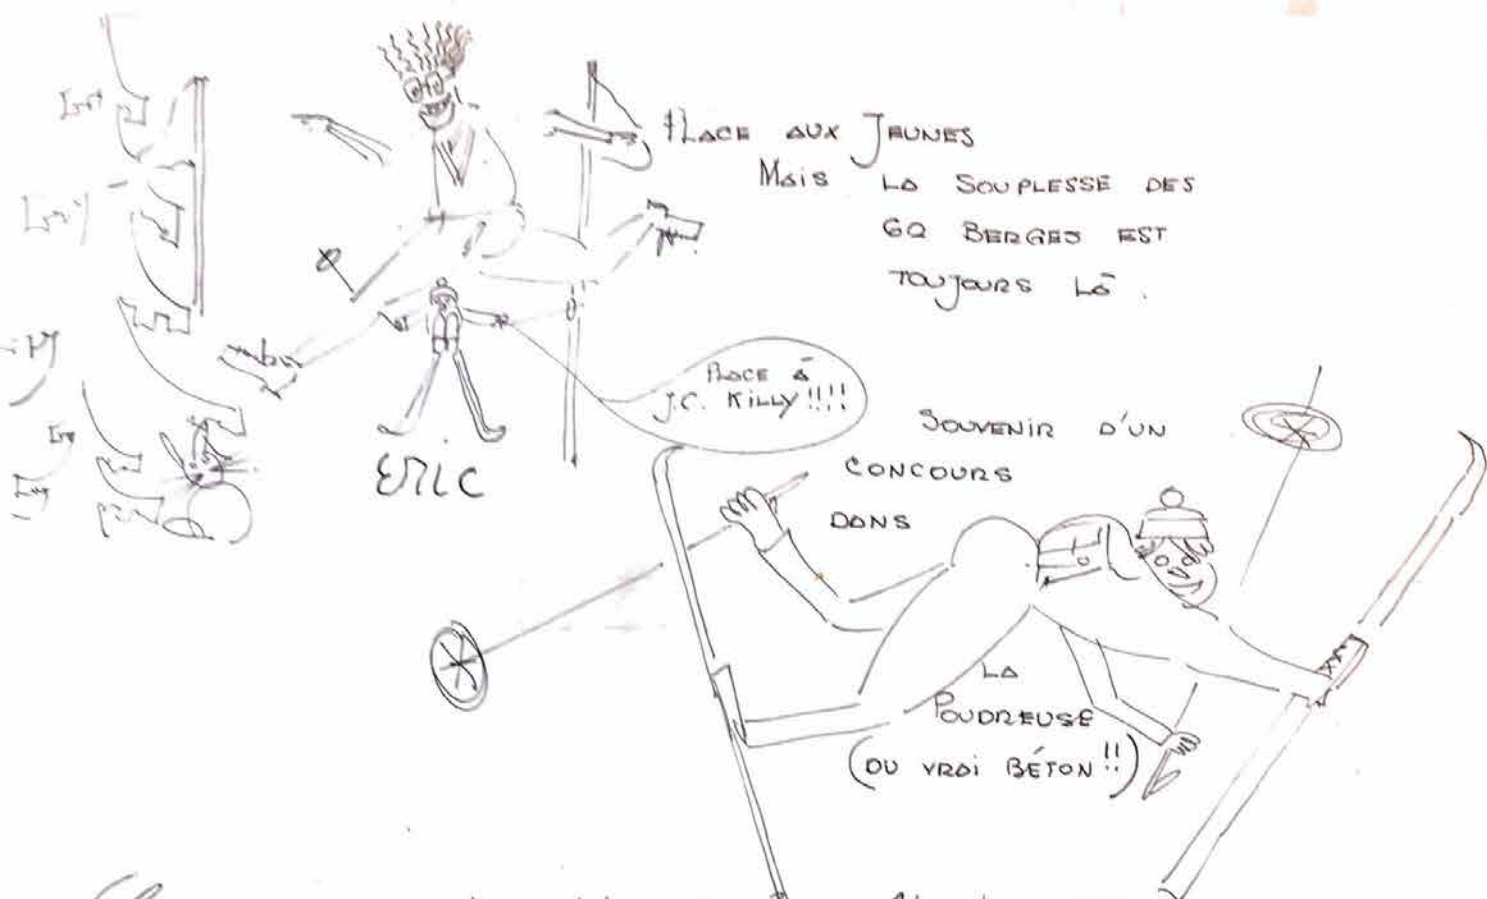 PLACE AUX JEUNES
MAIS LA SOUPLESSE DES
60 BERGES EST
TOUJOURS LÀ.
PLACE À
J.C. KILLY!!!!
ERIC
SOUVENIR D'UN
CONCOURS
DANS
LA
POUDREUSE
(DU VRAI BÉTON!!)